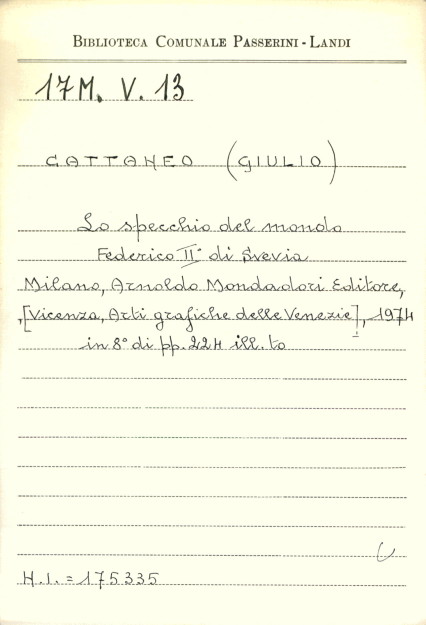 BIBLIOTECA COMUNALE PASSERINI - LANDI
17M. V. 13
CATTANEO (GIULIO)
Lo specchio del mondo
Federico II° di Svevia
Milano, Arnoldo Mondadori Editore,
[Vicenza, Arti grafiche delle Venezie], 1974
in 8° di pp. 224 ill. to
H.I. = 175335